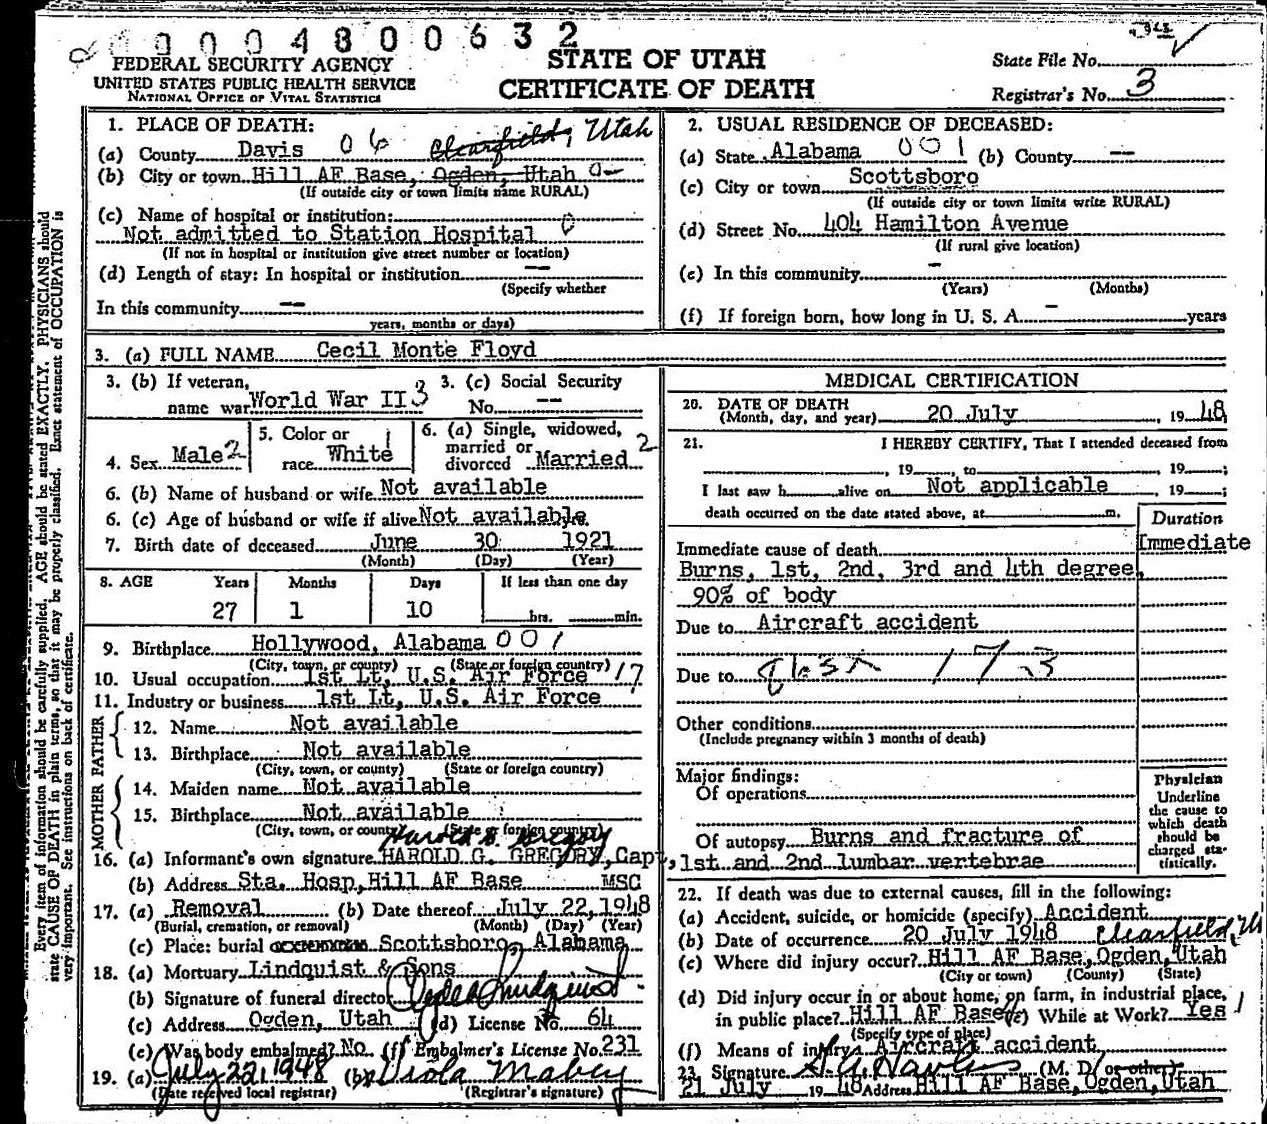 00004800632
FEDERAL SECURITY AGENCY
UNITED STATES PUBLIC HEALTH SERVICE
NATIONAL OFFICE OF VITAL STATISTICS
STATE OF UTAH
CERTIFICATE OF DEATH
State File No.
Registrar's No. 3
1. PLACE OF DEATH:
(a) County Davis 06 Clearfield, Utah
(b) City or town Hill AF Base, Ogden, Utah 0-
(If outside city or town limits name RURAL)
(c) Name of hospital or institution:
Not admitted to Station Hospital 0
(If not in hospital or institution give street number or location)
(d) Length of stay: In hospital or institution --
(Specify whether
In this community --
years, months or days)
2. USUAL RESIDENCE OF DECEASED:
(a) State Alabama 001 (b) County --
(c) City or town Scottsboro
(If outside city or town limits write RURAL)
(d) Street No. 404 Hamilton Avenue
(If rural give location)
(e) In this community -
(Years) (Months)
(f) If foreign born, how long in U. S. A. - years
3. (a) FULL NAME Cecil Monte Floyd
3. (b) If veteran,
name war World War II 3
3. (c) Social Security
No. --
4. Sex Male 2
5. Color or
race White 1
6. (a) Single, widowed,
married or
divorced Married 2
6. (b) Name of husband or wife Not available
6. (c) Age of husband or wife if alive Not available
7. Birth date of deceased June 30 1921
(Month) (Day) (Year)
8. AGE Years Months Days If less than one day
27 1 10 hrs. min.
9. Birthplace Hollywood, Alabama 001
(City, town, or county) (State or foreign country)
10. Usual occupation 1st Lt, U.S. Air Force 17
11. Industry or business 1st Lt, U.S. Air Force
FATHER
12. Name Not available
13. Birthplace Not available
(City, town, or county) (State or foreign country)
MOTHER
14. Maiden name Not available
15. Birthplace Not available
(City, town, or county) (State or foreign country)
Harold G. Gregory
16. (a) Informant's own signature HAROLD G. GREGORY, Capt,
(b) Address Sta. Hosp, Hill AF Base MSC
17. (a) Removal (b) Date thereof July 22, 1948
(Burial, cremation, or removal) (Month) (Day) (Year)
(c) Place: burial Scottsboro, Alabama
18. (a) Mortuary Lindquist & Sons
(b) Signature of funeral director Lindquist
(c) Address Ogden, Utah (d) License No. 64
(e) Was body embalmed? No (f) Embalmer's License No. 231
19. (a) July 22, 1948 (b) Viola Mabey
(Date received local registrar) (Registrar's signature)
MEDICAL CERTIFICATION
20. DATE OF DEATH
(Month, day, and year) 20 July, 1948
21. I HEREBY CERTIFY, That I attended deceased from
, 19 , to , 19 ;
I last saw h alive on Not applicable , 19 ;
death occurred on the date stated above, at m.
Duration
Immediate cause of death Immediate
Burns, 1st, 2nd, 3rd and 4th degree,
90% of body
Due to Aircraft accident
Due to 173
Other conditions
(Include pregnancy within 3 months of death)
Major findings:
Of operations
Of autopsy Burns and fracture of
1st and 2nd lumbar vertebrae
Physician
Underline
the cause to
which death
should be
charged sta-
tistically.
22. If death was due to external causes, fill in the following:
(a) Accident, suicide, or homicide (specify) Accident
(b) Date of occurrence 20 July 1948 Clearfield, Ut
(c) Where did injury occur? Hill AF Base, Ogden, Utah
(City or town) (County) (State)
(d) Did injury occur in or about home, on farm, in industrial place,
in public place? Hill AF Base (e) While at Work? Yes 1
(Specify type of place)
(f) Means of injury Aircraft accident
23. Signature (M. D. or other)
21 July 1948 Address Hill AF Base, Ogden, Utah
Every item of information should be carefully supplied. AGE should be stated EXACTLY. PHYSICIANS should
state CAUSE OF DEATH in plain terms, so that it may be properly classified. Exact statement of OCCUPATION is
very important. See instructions on back of certificate.